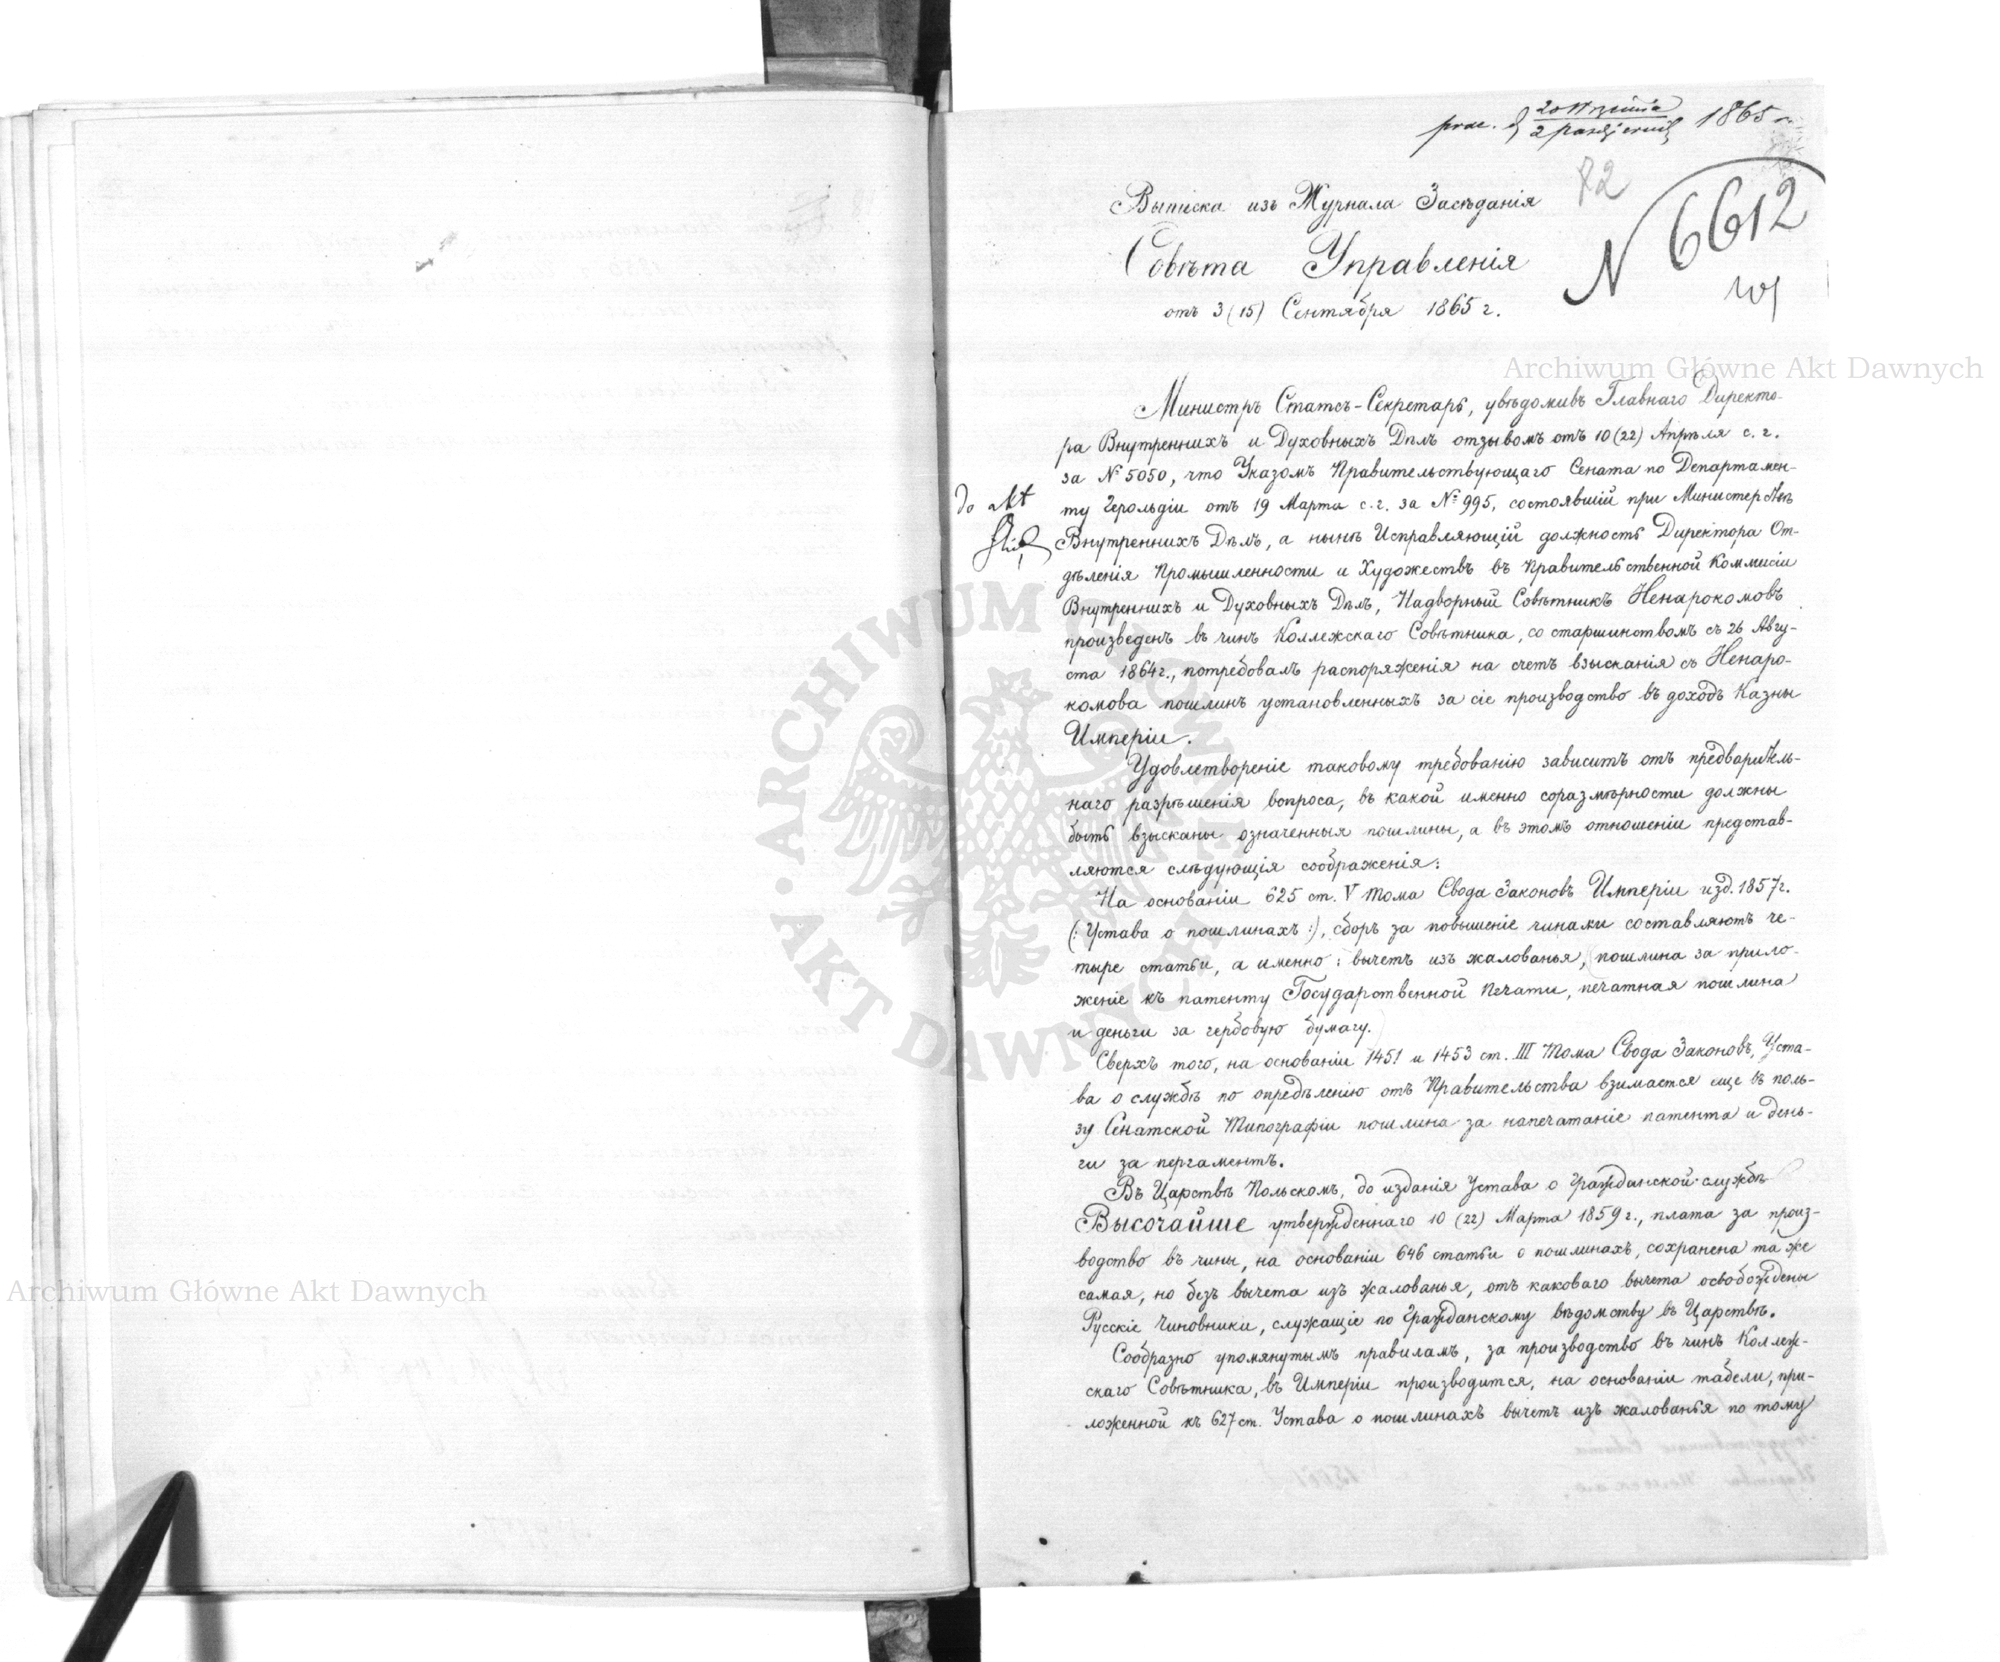 20 Września
2 października 1865 r.
82
N 6612
Выписка изъ Журнала Засѣданія
Совѣта Управленія
отъ 3 (15) Сентября 1865 г.
Министръ Статсъ-Секретарь, увѣдомивъ Главнаго Директо-
ра Внутреннихъ и Духовныхъ Дѣлъ отзывомъ отъ 10 (22) Апрѣля с. г.
за № 5050, что Указомъ Правительствующаго Сената по Департамен-
ту Герольдіи отъ 19 Марта с. г. за № 995, состоявшій при Министерствѣ
Внутреннихъ Дѣлъ, а нынѣ Исправляющій должность Директора От-
дѣленія Промышленности и Художествъ въ Правительственной Коммисіи
Внутреннихъ и Духовныхъ Дѣлъ, Надворный Совѣтникъ Ненарокомовъ
произведенъ въ чинъ Коллежскаго Совѣтника, со старшинствомъ съ 26 Авгу-
ста 1864 г., потребовалъ распоряженія на счетъ взысканія съ Ненаро-
комова пошлинъ установленныхъ за сіе производство въ доходъ Казны
Имперіи.
Удовлетвореніе таковому требованію зависитъ отъ предваритель-
наго разрѣшенія вопроса, въ какой именно соразмѣрности должны
быть взысканы означенныя пошлины, а въ этомъ отношеніи представ-
ляются слѣдующія соображенія:
На основаніи 625 ст. V тома Свода Законовъ Имперіи изд. 1857 г.
(: Устава о пошлинахъ :), сборъ за повышеніе чинами составляютъ че-
тыре статьи, а именно: вычетъ изъ жалованья, пошлина за прило-
женіе къ патенту Государственной Печати, печатная пошлина
и деньги за гербовую бумагу.
Сверхъ того, на основаніи 1451 и 1453 ст. III Тома Свода Законовъ, Уста-
ва о службѣ по опредѣленію отъ Правительства взимается еще въ поль-
зу Сенатской Типографіи пошлина за напечатаніе патента и день-
ги за пергаментъ.
Въ Царствѣ Польскомъ, до изданія Устава о Гражданской службѣ
Высочайше утвержденнаго 10 (22) Марта 1859 г., плата за произ-
водство въ чины, на основаніи 646 статьи о пошлинахъ, сохранена та же
самая, но безъ вычета изъ жалованья, отъ каковаго вычета освобождены
Русскіе Чиновники, служащіе по Гражданскому вѣдомству въ Царствѣ.
Сообразно упомянутымъ правиламъ, за производство въ чинъ Коллеж-
скаго Совѣтника, въ Имперіи производится, на основаніи табели, при-
ложенной къ 627 ст. Устава о пошлинахъ вычетъ изъ жалованья по тому
do akt
Archiwum Główne Akt Dawnych
Archiwum Główne Akt Dawnych
ARCHIWUM GŁÓWNE AKT DAWNYCH